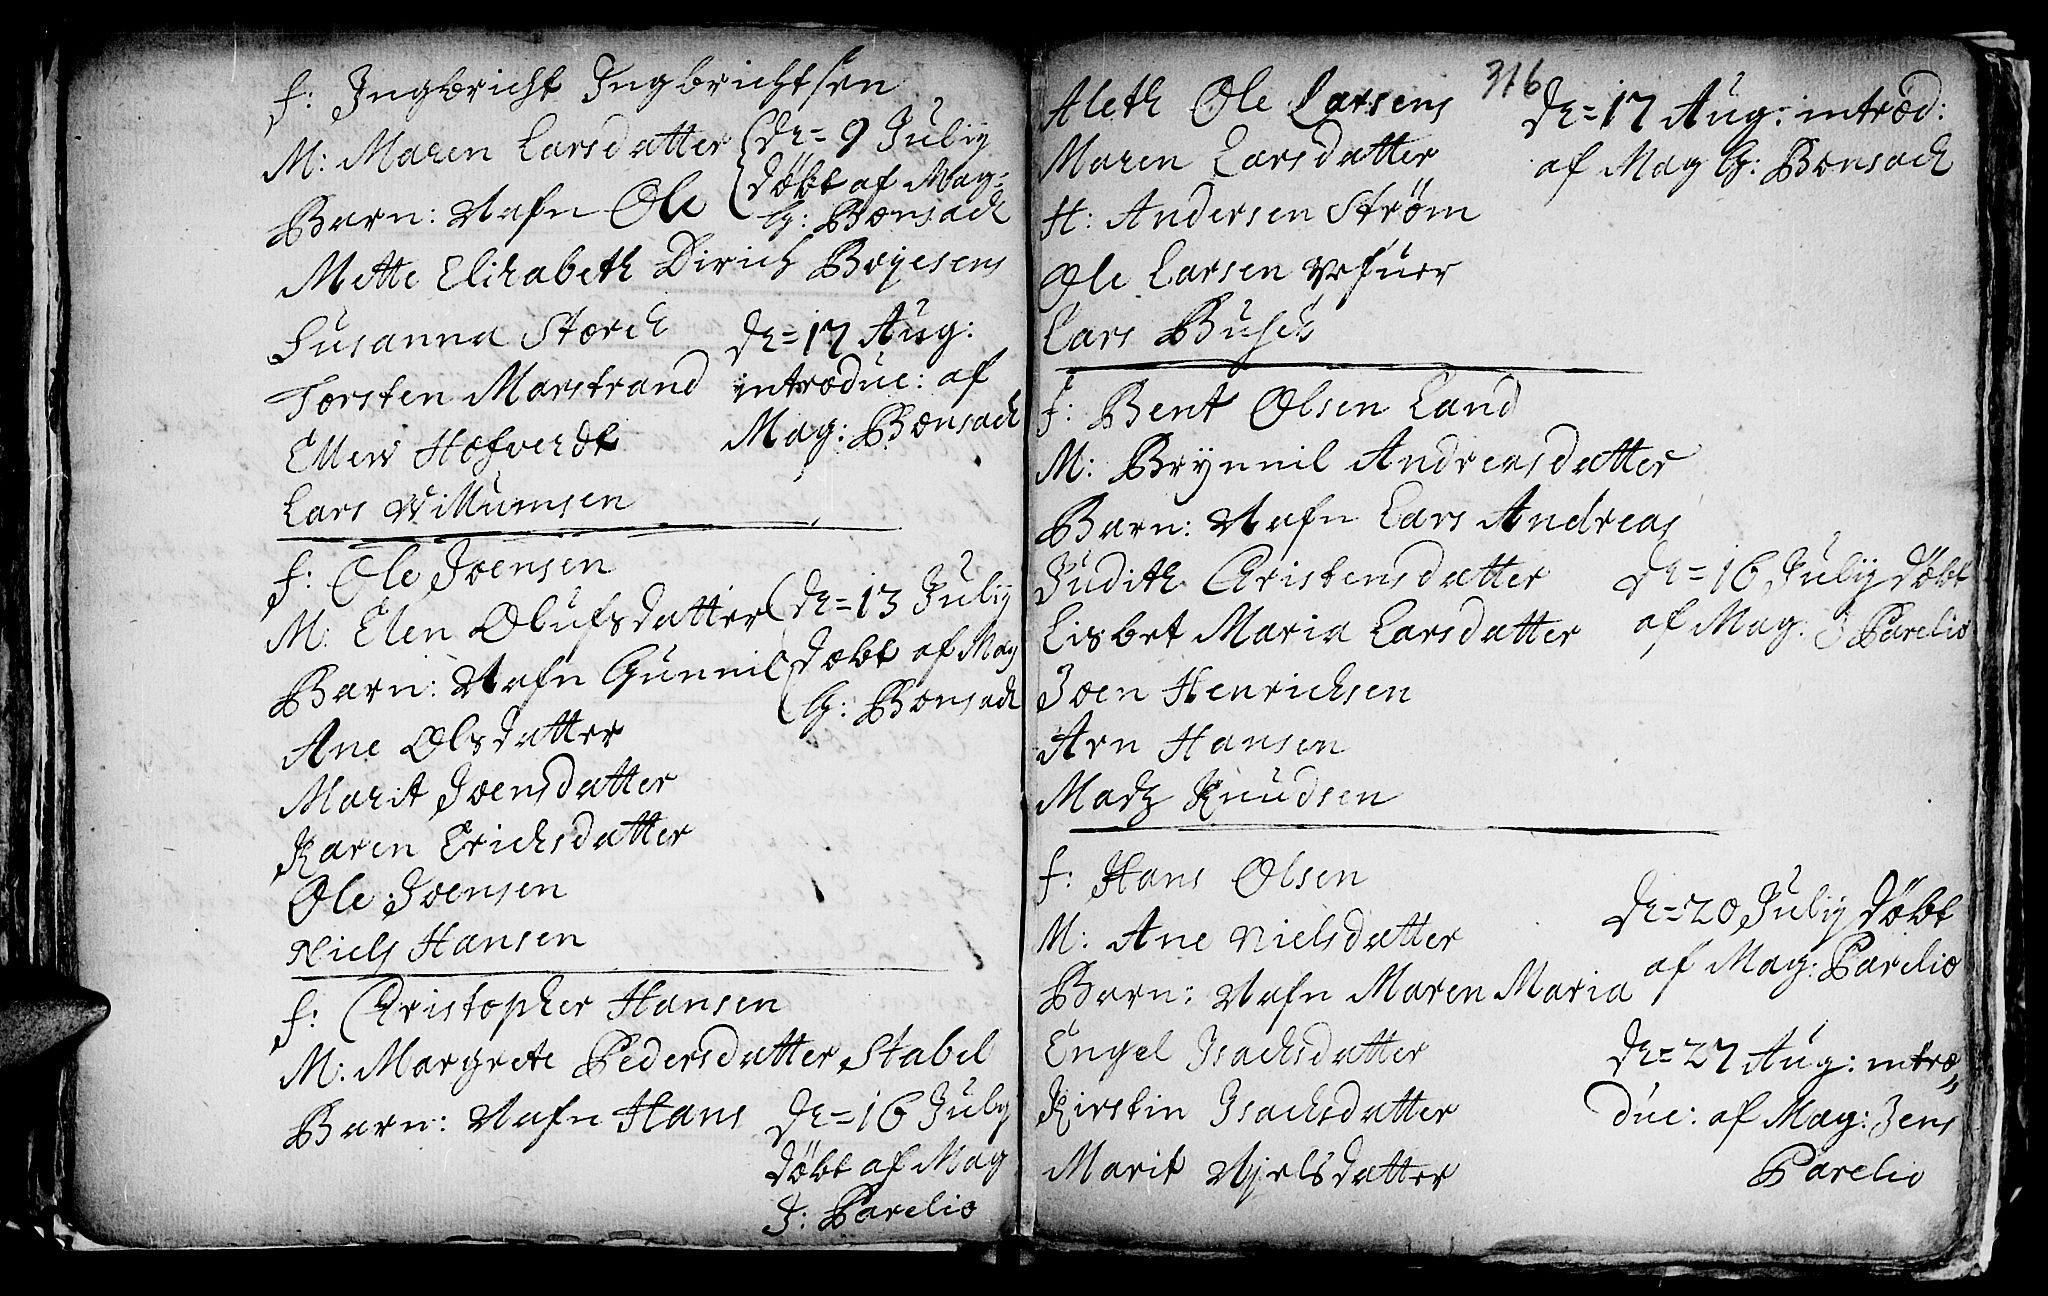 f: Ingbricht Ingbrichtsen
M: Maren Larsdatter
Barn: Nafn Ole
de= 9 Julij
døbt af Mag:
G: Bonsach
Mette Elizabeth Dirich Bøyesens
Susanna Storch
Torsten Marstrand
Ellen Hofverdt
Lars Villumsen
de= 17 Aug:
introduc: af
Mag: Bonsach
f: Ole Joensen
M: Elen Olufsdatter
Barn: Nafn Gunnil
de= 13 Julij
døbt af Mag
G: Bonsach
Ane Olsdatter
Marit Joensdatter
Karen Erichsdatter
Ole Joensen
Niels Hansen
f: Christopher Hansen
M: Margrete Pedersdatter Stabel
Barn: Nafn Hans
de= 16 July
døbt af Mag
J: Parelio
316
Aleth Ole Larsens
Maren Larsdatter
H: Andersen Strøm
Ole Larsen
Lars Busch
de= 17 Aug: introd:
af Mag G: Bonsach
f: Bent Olsen Land
M: Brynnil Andreasdatter
Barn: Nafn Lars Andreas
Judith Christensdatter
Lisbet Maria Larsdatter
Joen Henrichsen
Arn Hansen
Madz Knudsen
de= 16 Julij døbt
af Mag: J Parelio
f: Hans Olsen
M: Ane Nielsdatter
Barn: Nafn Maren Maria
Engel Isachsdatter
Kirstin Isachsdatter
Marit Njelsdatter
de= 20 Julij døbt
af Mag: Parelio
de= 27 Aug: intro=
duc: af Mag: Jens
Parelio